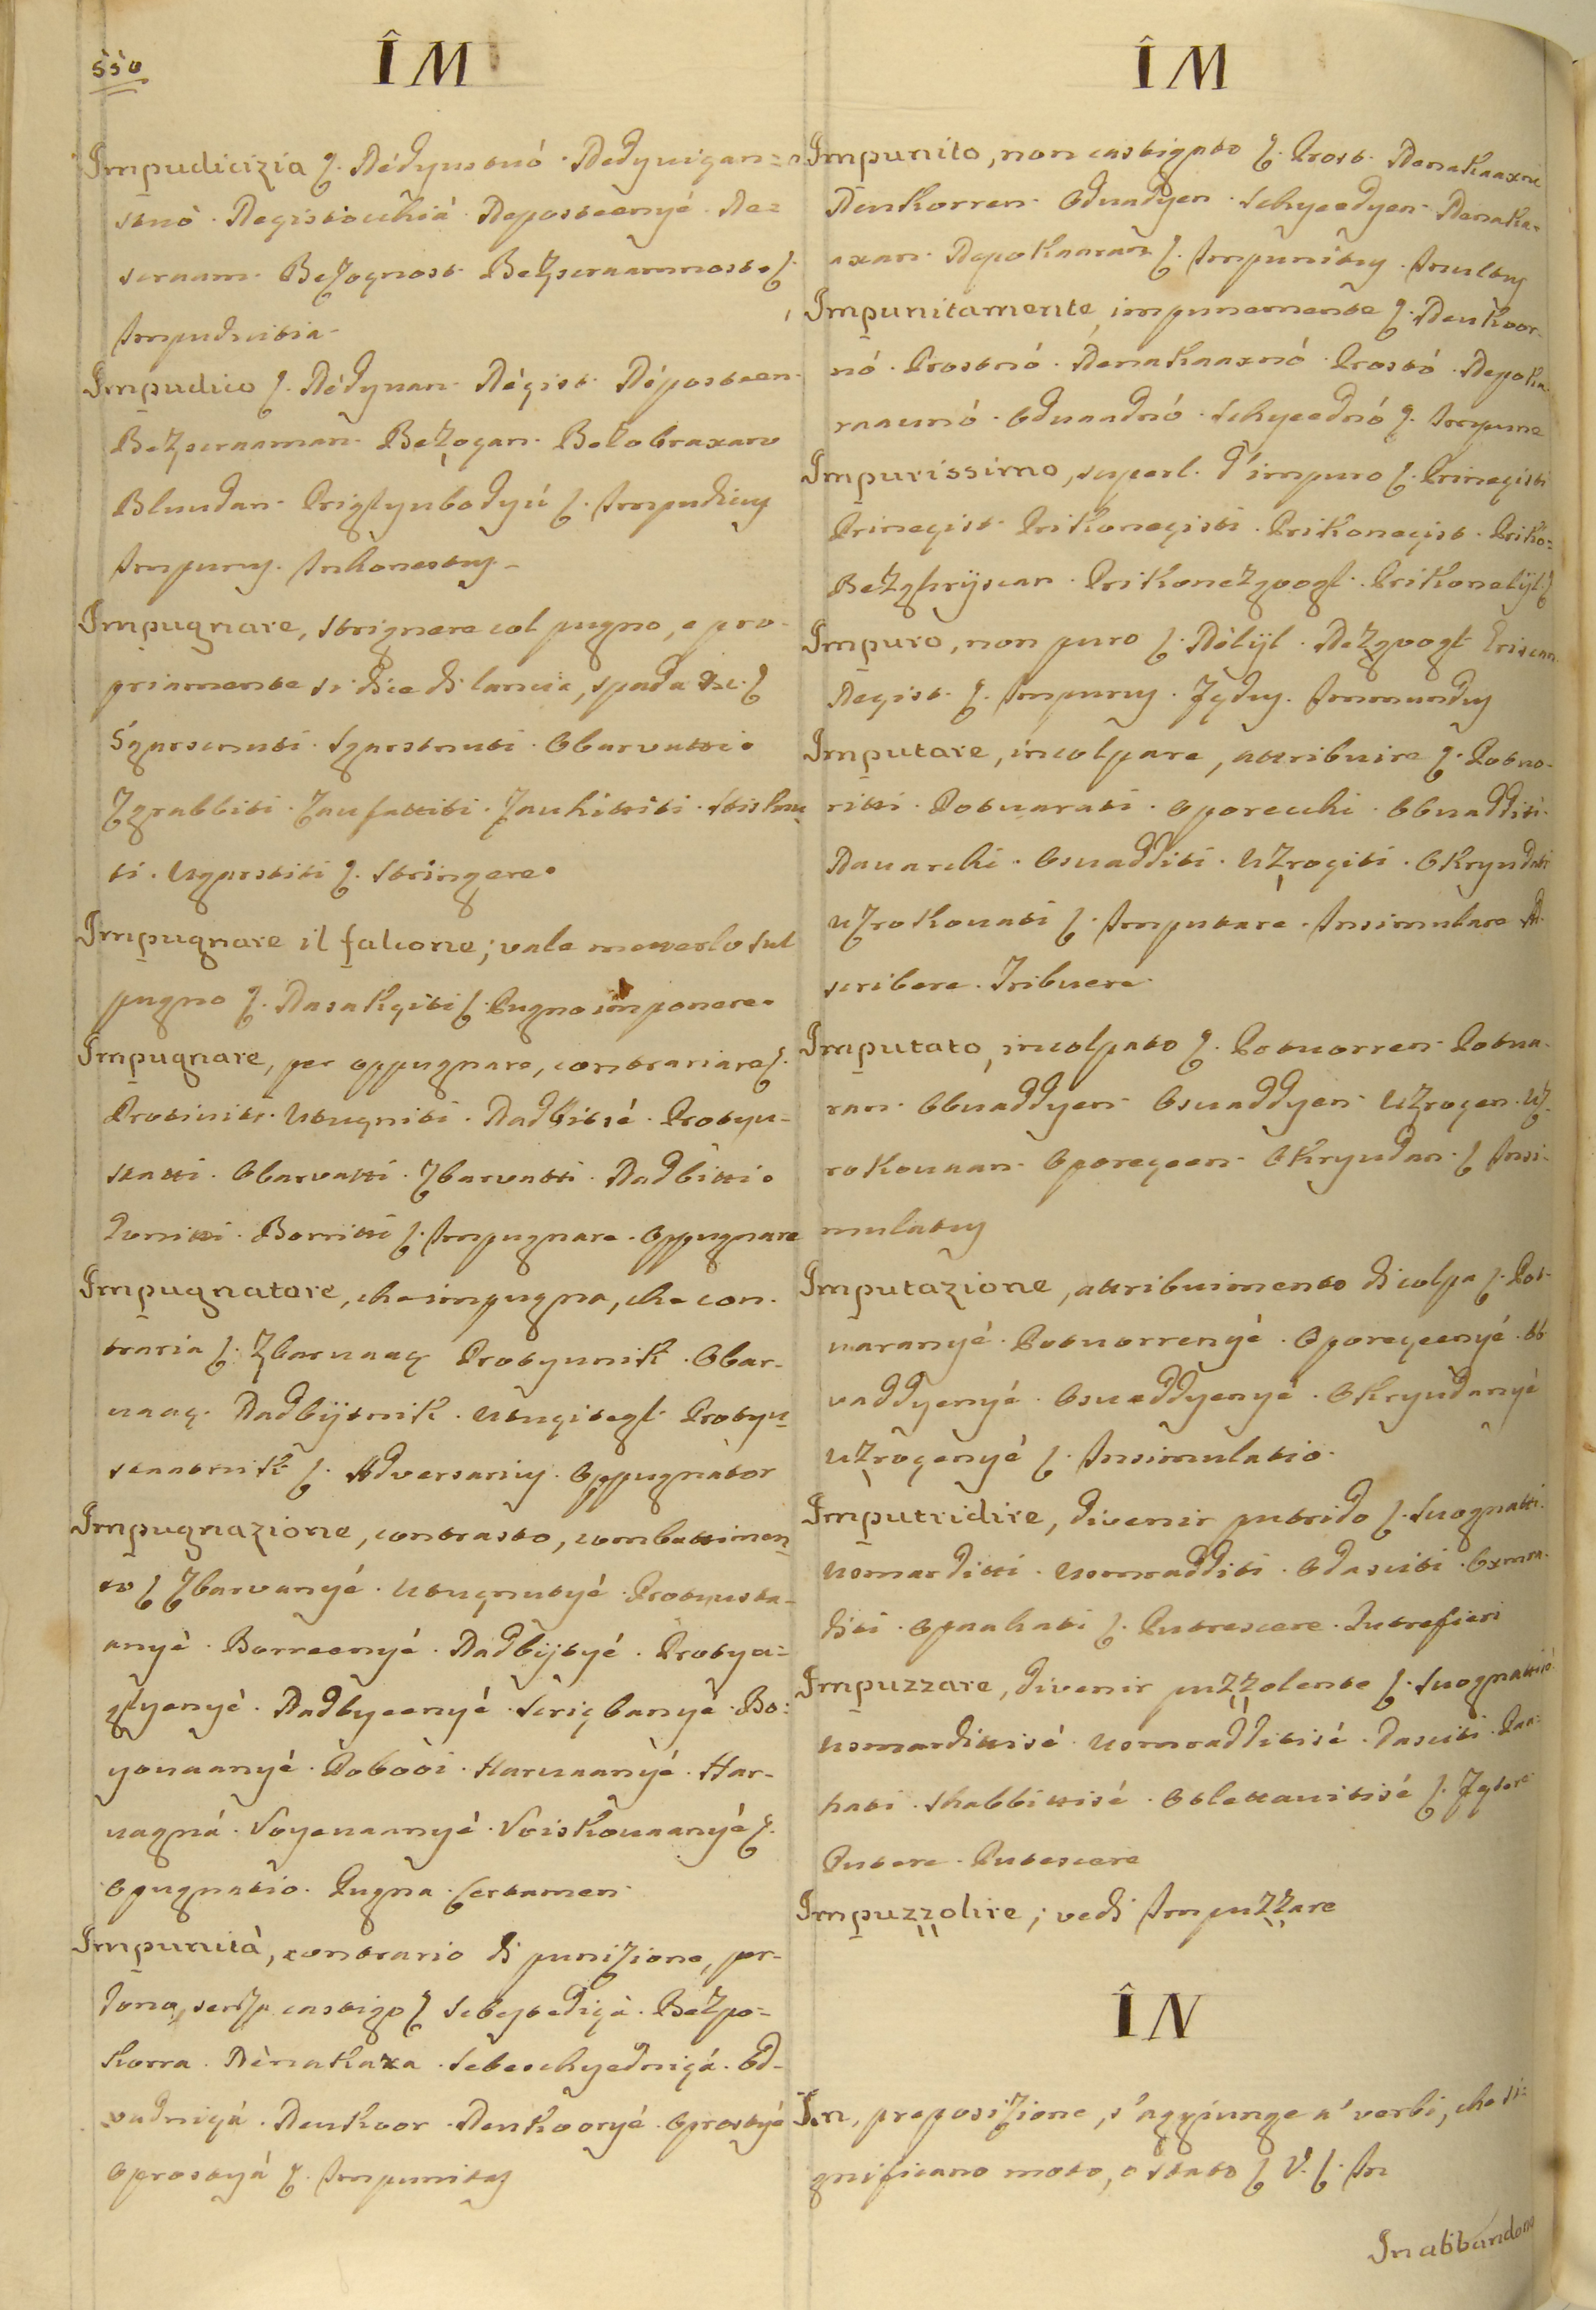 550
ÎM
Impudicizia ſ. Nédyustuó. Nedyuigan=
stuò. Negistocchià. Neposteenyé. Ne=
scraam. Bezognost. Bezscraamnost. ſ.
Impudicitia.
Impudico ſ. Nédyuan. Négist. Néposteen.
Bezscraaman. Bezogan. Bezobraxan
Bluudan. Priglyubodyú ſ. Impudicus
Impurus. Inhonestus.
Impugnare, strignere col pugno, e pro-
priamente si dice di lancia, spada &c. ſ
Sgarscnuti. Sgarstnuti. Obarvatti.
Zgrabbiti. Zaufattiti. Zauhittiti. Stisknu
ti. Ugarstiti ſ. Stringere.
Impugnare il falcone; vale metterlo sul
pugno ſ. Nasakgiti ſ. Pugno imponere.
Impugnare, per oppugnare, contrariare ſ.
Protiviti. Utugniti. Nadbitsé. Protyu-
statti. Obarvatti. Zbarvatti. Nadbitti.
Poniti. Borritti ſ. Impugnare. Oppugnare
Impugnatore, che impugna, che con-
traria ſ. Zbarvaag Protyunik. Obar-
vaag. Nadbijtnik. Utugitegl. Protyu
staatnik ſ. Adversarius. Oppugnator
Impugnazione, contrasto, combattimen
to ſ Zbarvanyé. Utugnutyé. Protyusta-
anyé. Borreenyé. Nadbijtyé. Protya=
glyenyé. Nadbyeenyé. Scrigbanyé. Bo=
yovaanyé. Dobòoi. Harvaanyé. Har-
vagná. Voyevaanyé. Voiskovaanyé ſ.
Opugnatio. Pugna. Certamen.
Impunità, contrario di punizione, per-
dono, senza castigo ſ Scbytedigà. Bezpo=
korra. Nènakaxa. Scbeschyednigá. Od-
vadnigá. Nenkoor. Nenkooryé. Oprostyé
Oprostyá ſ. Impunitas
ÎM
Impunito, non castigato ſ. Prost. Nenakaaxni
Nenkorren. Odvadyen. Schyeedyen. Nenaka=
axan. Nepokaaran ſ. Impunitus. Inultus
Impunitamente, impunemente ſ. Nenkoor-
nó. Prostnó. Nenakaaxnó. Prostó. Nepoka-
raaunó. Odvaadnó. Schyeednó ſ. Impune
Impurissimo, superl. d'impuro ſ. Prinegisti
Prinegist. Prikonegisti. Prikonegist. Priko=
Bezghrijscan. Prikonezgvogl. Prikonelijl ſ
Impuro, non puro ſ. Nélijl. Nezgvogl
Negist. ſ. Impurus. Immundus
Imputare, incolpare, attribuire ſ. Potuo-
ritti. Potuarati. Oporecchi. Obvadditi.
Navarchi. Osvadditi. Uzrogiti. Okryudati
Uzrokovati ſ. Imputare. Insimulare Ad
scribere. Tribuere.
Imputato, incolpato ſ. Potuorren. Potua-
ran. Obvaddyen. Osvaddyen. Uzrogen. Uz-
rokovaan. Oporegeen. Okryudan. ſ Insi-
mulatus
Imputazione, attribuimento di colpa ſ. Pot-
uaranyé. Potuorrenyé. Oporegeenyé. Ob
vaddyenyé. Osvaddyenyé. Okryudanyé
Uzrogenyé ſ. Insimulatio.
Imputridire, divenir putrido ſ. Suognatti.
Usmarditti. Usmradditi. Odasciti. Oxmra-
diti. Opaahati ſ. Putrescere. Putrefieri
Impuzzare, divenir puzzolente ſ. Suognattisé
Usmardittisé. Usmradditisé. Dasciti. Paa-
hati. Skabbittisé. Otlettavitisé ſ.
Putere. Putescere
Impuzzolire; vedi Impuzzare
ÎN
In, preposizione, s'aggiunge a' verbi, che si=
gnificano moto, o stato ſ V. ſ. In
In abbandono